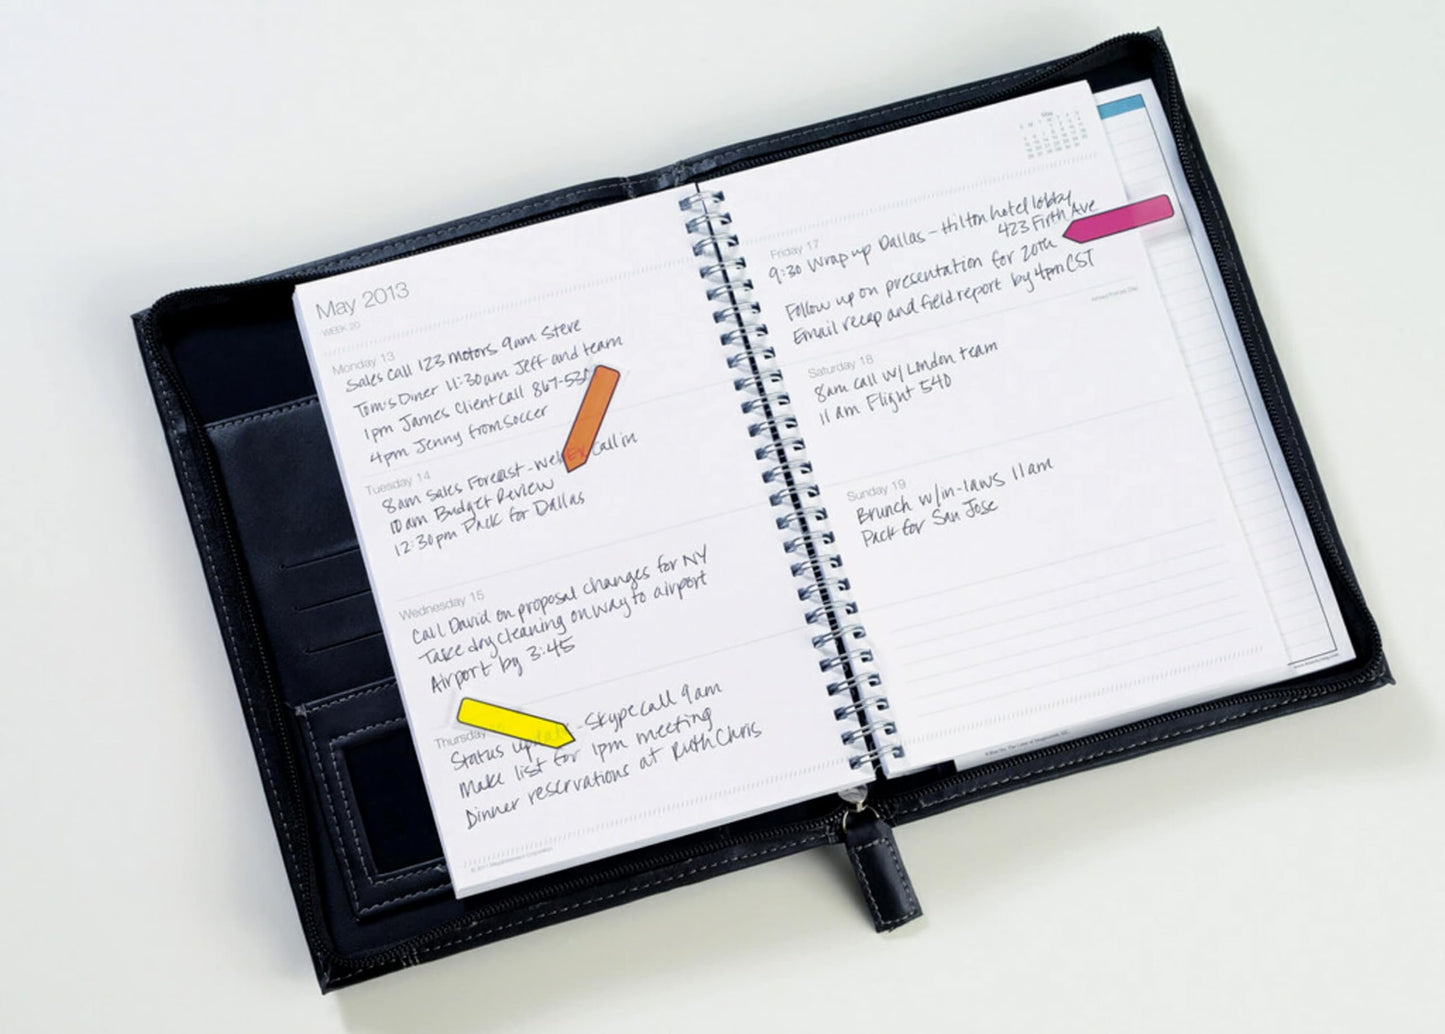 May 2013
WEEK 20
Monday 13
Sales Call 123 motors 9am Steve
Tom's Diner 11:30am Jeff and team
1pm James Client call 867-530
4pm Jenny from soccer
Tuesday 14
8am Sales Forecast - Call in
10am Budget Review
12:30pm Pack for Dallas
Wednesday 15
Call David on proposal changes for NY
Take dry cleaning on way to airport
Airport by 3:45
Thursday
Status update - Skype call 9am
Make list for 1pm meeting
Dinner reservations at Ruth Chris
May
Friday 17
9:30 Wrap up Dallas - Hilton hotel lobby
423 Firth Ave
Follow up on presentation for 20th
Email recap and field report by 4pm CST
Armed Forces Day
Saturday 18
8am call w/ London team
11 am Flight 540
Sunday 19
Brunch w/in-laws 11am
Pack for San Jose